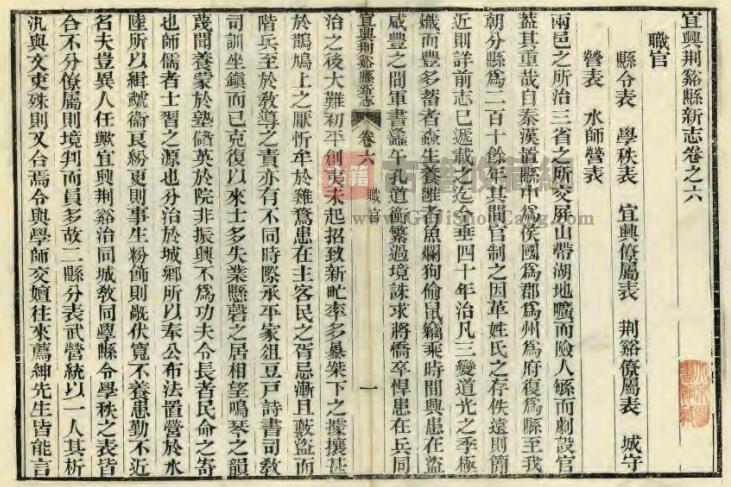 宜興荆谿縣新志卷之六
職官
縣令表 學秩表 宜興僚屬表 荆谿僚屬表 城守
營表 水師營表
兩邑之所治三省之所交屏山帶湖地曠而險人緐而劇設官
蓋其重哉自秦漢置縣中爲侯國爲郡爲州爲府復爲縣至我
朝分縣爲二百十餘年其閒官制之因革姓氏之存佚遠則簡
近則詳前志已遞載之迄今垂四十年治凡三變道光之季極
熾而豐多蓄者蟲生養雖者魚爛狗偷鼠竊乘時間興患在盜
咸豐之間軍書蠭午孔道衝繁過境誅求將僑卒悍患在兵同
宜興荆谿縣新志 卷六 職官 一
治之後大難初平創夷未起招致新甿率多暴桀下之攘攘甚
於鵲鳩上之厭忻牟於雞鶩患在主客民之胥忌漸且斆盜而
階兵至於敎導之責亦有不同時際承平家俎豆戸詩書司敎
司訓坐鎮而已克復以來士多失業懸磬之居相望鳴琴之韻
蔑聞養蒙於塾儲英於院非振興不爲功夫令長者民命之寄
也師儒者士習之源也分治於城鄉所以奉公布法置營於水
陸所以緝虣衞良紛更則事生粉飾則敝伏寬不養患勤不近
名夫豈異人任歟宜興荆谿治同城敎同學縣令學秩之表皆
合不分僚屬則境判而員多故二縣分表武營統以一人其析
汛與文吏殊則又合焉令與學師交嬗往來薦紳先生皆能言